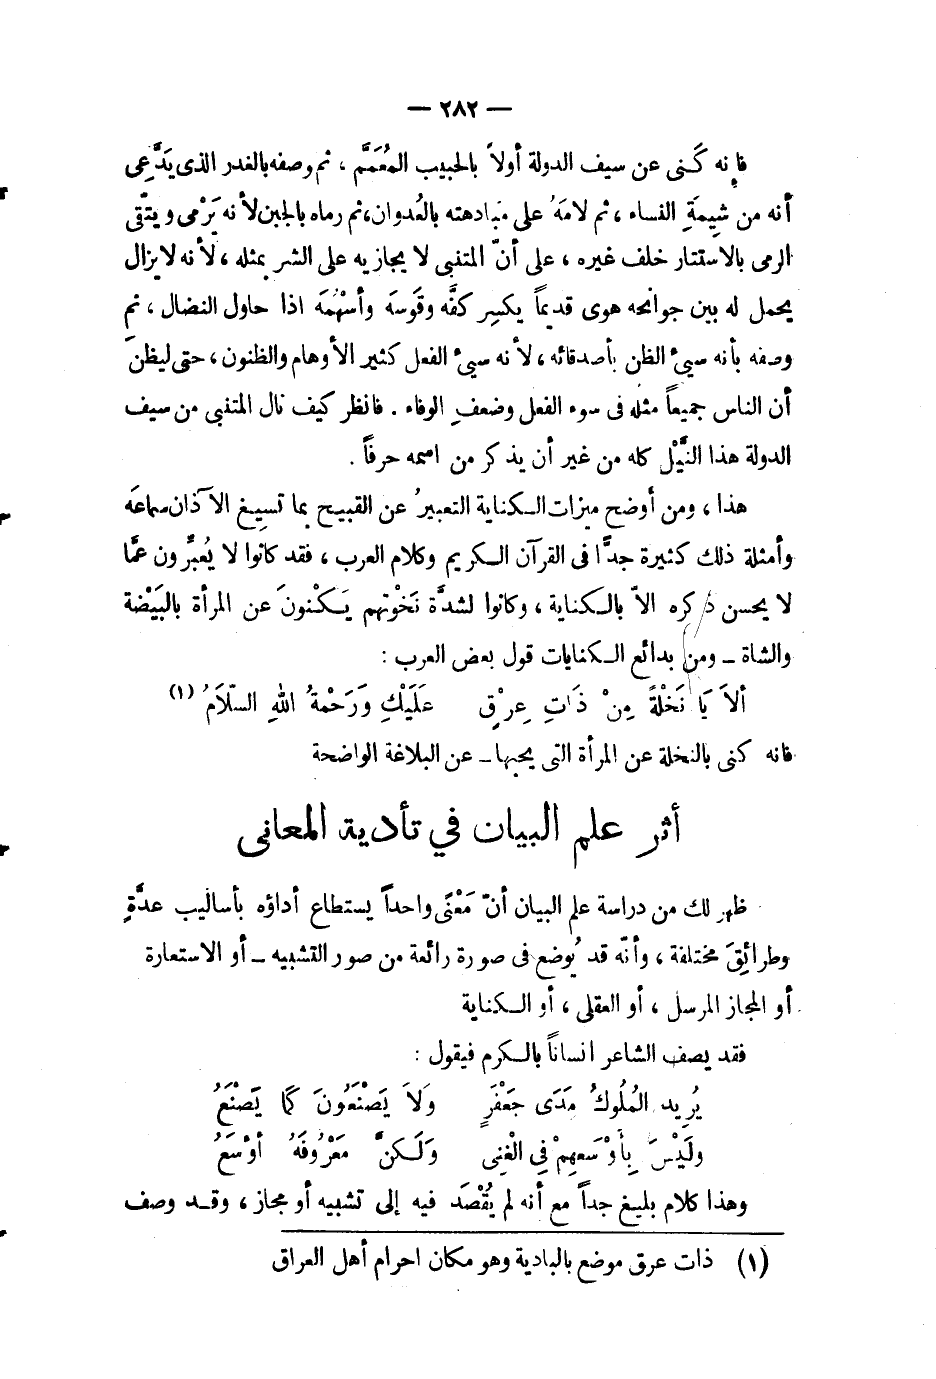 — ٢٨٢ —
فإنه كَنى عن سيف الدولة أولاً بالحبيب المُعَمَّم ، ثم وصفه بالغدر الذى يَدَّعِى
أنه من شِيمَةِ النساء ، ثم لامَهُ على مبادهته بالعُدوان، ثم رماه بالجبن لأنه يَرْمى ويتّقى
الرمى بالاستتار خلف غيره ، على أنّ المتنبى لا يجازيه على الشر بمثله ، لأنه لا يزال
يحمل له بين جوانحه هوى قديماً يكسِر كفَّه وقَوسَه وأسْهُمَه اذا حاول النضال ، ثم
وصفه بأنه سيئ الظن بأصدقائه ، لأنه سيئ الفعل كثير الأوهام والظنون ، حتى ليظنّ
أن الناس جميعاً مثله فى سوء الفعل وضعفِ الوفاء . فانظر كيف نال المتنبى من سيف
الدولة هذا النَّيْل كله من غير أن يذكر من اسمه حرفاً .
هذا ، ومن أوضح ميزات الكناية التعبيرُ عن القبيح بما تسِيغ الآذان سماعَه
وأمثلة ذلك كثيرة جدًّا فى القرآن الكريم وكلام العرب ، فقد كانوا لا يُعبِّرون عمَّا
لا يحسن ذكره الاّ بالكناية ، وكانوا لشدَّة نَخْوتهم يَكْنونَ عن المرأة بالبَيْضة
والشاة ــ ومن بدائع الكنايات قول بعض العرب :
ألاَ يَا نَخْلَةً مِنْ ذَاتِ عِرْقٍ عَلَيْكِ وَرَحْمَةُ اللهِ السّلاَمُ (١)
فانه كنى بالنخلة عن المرأة التى يحبها ــ عن البلاغة الواضحة
أثر علم البيان في تأدية المعانى
ظهر لك من دراسة علم البيان أنّ مَعْنًى واحداً يستطاع أداؤه بأساليب عدَّةٍ
وطرائِقَ مختلفة ، وأنّه قد يُوضع فى صورة رائعة من صور التشبيه ــ أو الاستعارة
أو المجاز المرسل ، أو العقلى ، أو الكناية
فقد يصف الشاعر انساناً بالكرم فيقول :
يُرِيد المُلُوكُ مَدَى جَعْفَرٍ وَلاَ يَصْنَعُونَ كَمَا يَصْنَعُ
ولَيْسَ بِأَوْسَعِهِمْ فِي الْغِنى وَلَكنَّ مَعْرُوفَهُ أوْسَعُ
وهذا كلام بليغ جداً مع أنه لم يُقْصَد فيه إلى تشبيه أو مجاز ، وقد وصف
(١) ذات عرق موضع بالبادية وهو مكان احرام أهل العراق